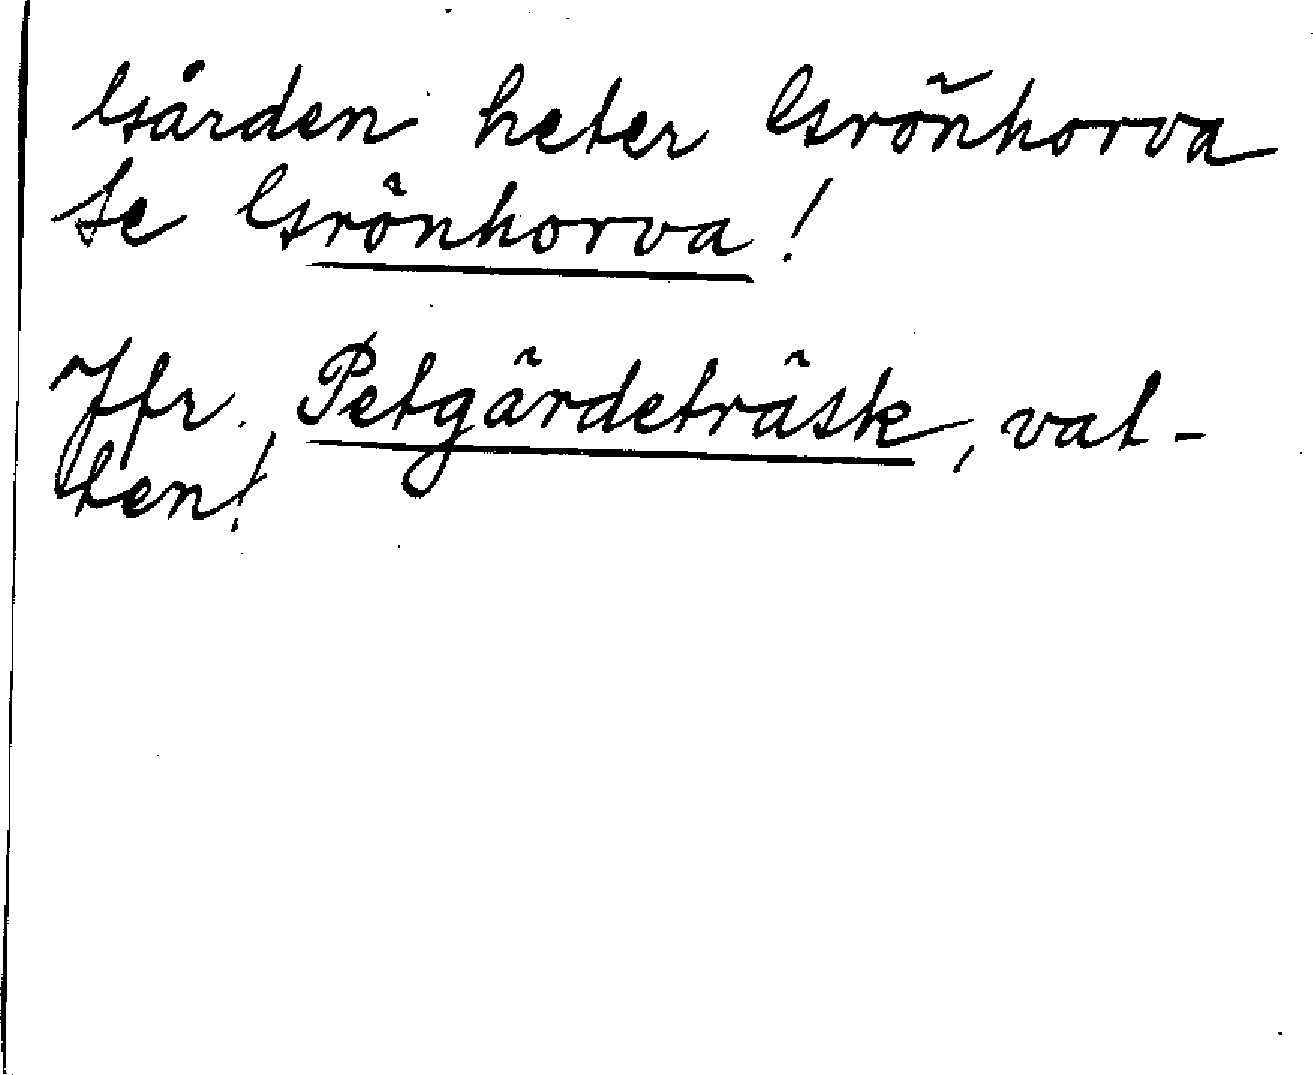 Gården heter Grönhorva
Se Grönhorva!
Jfr. Petgärdeträsk, vat-
ten!